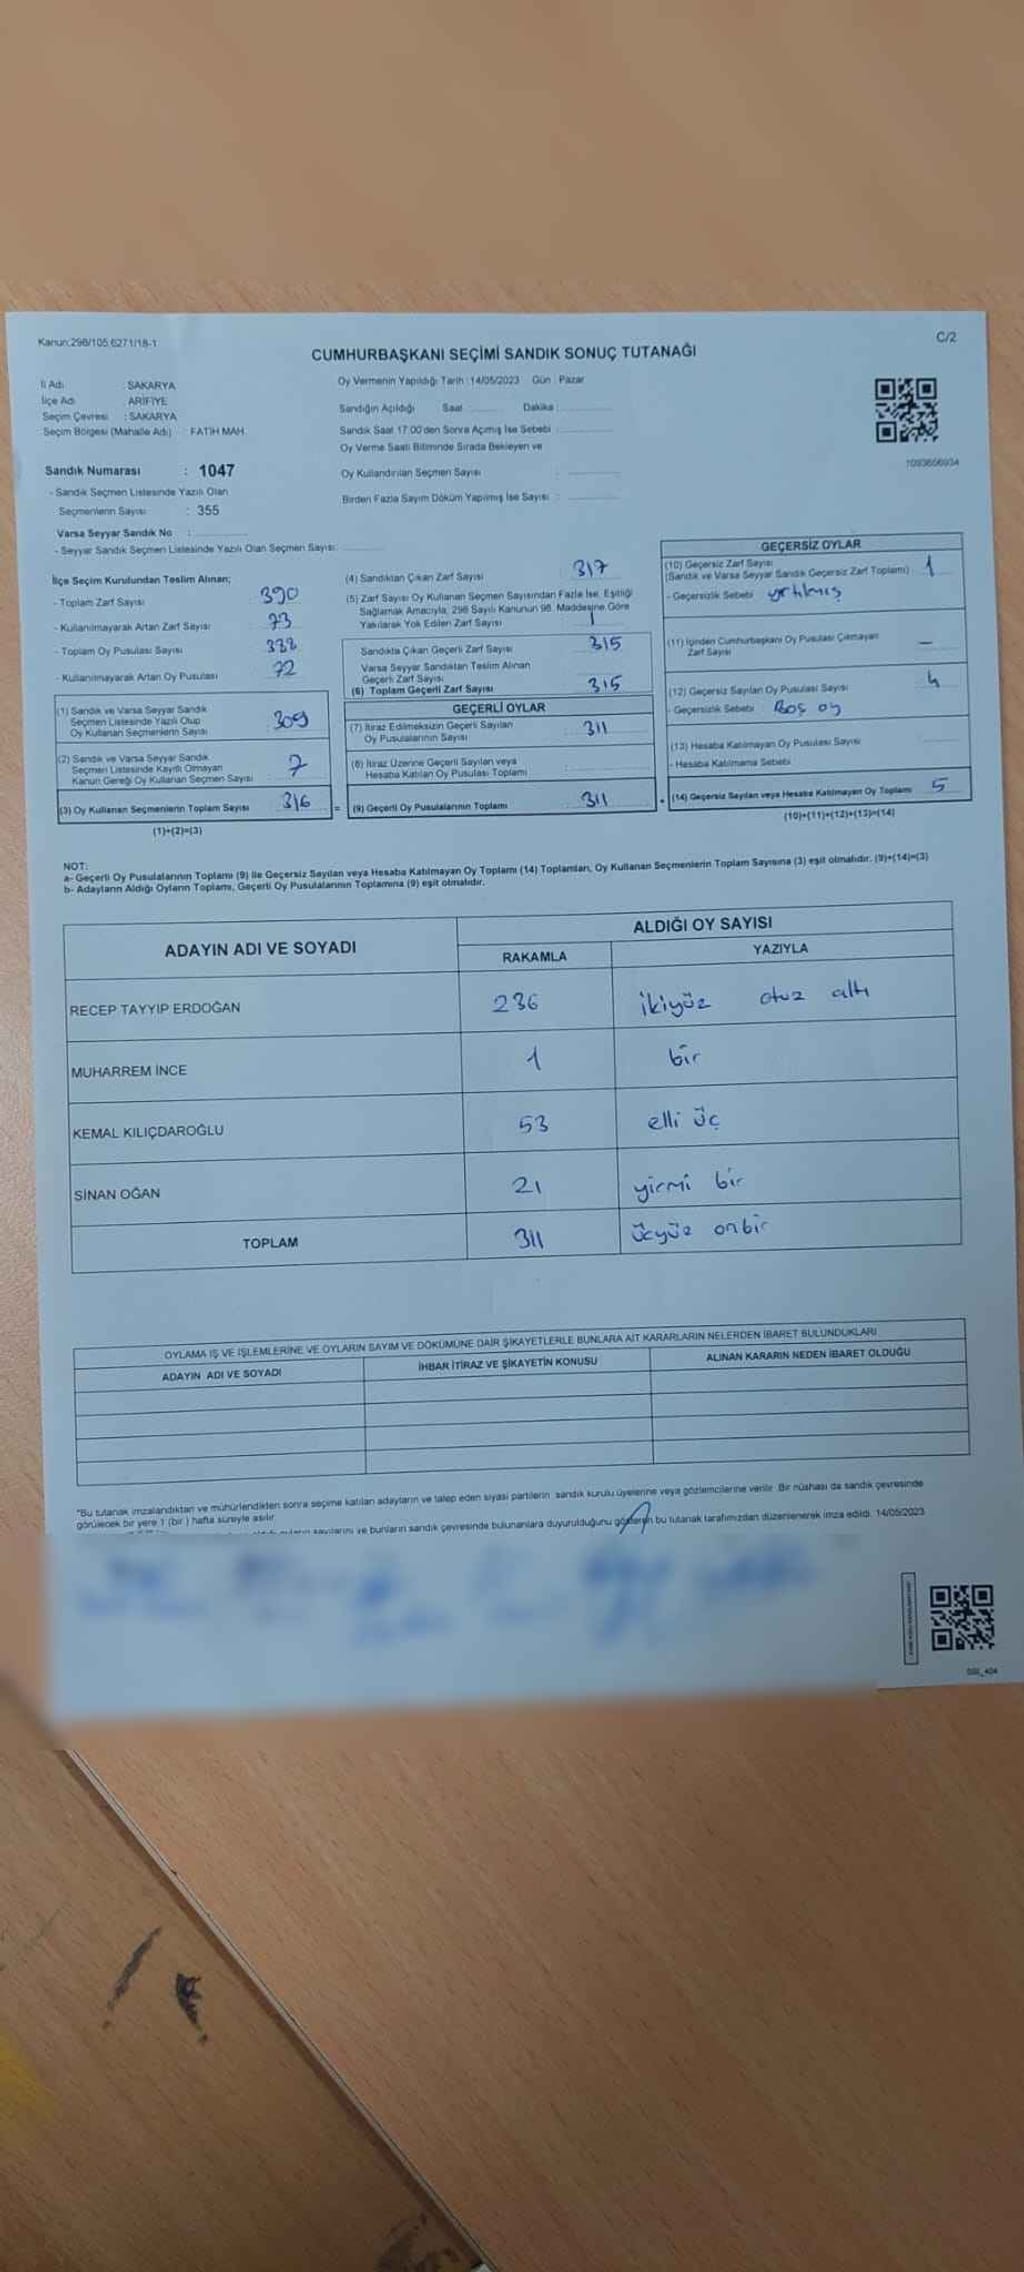 Kanun:298/105 6271/18-1
C/2
CUMHURBAŞKANI SEÇİMİ SANDIK SONUÇ TUTANAĞI
İl Adı : SAKARYA
İlçe Adı : ARİFİYE
Seçim Çevresi : SAKARYA
Seçim Bölgesi (Mahalle Adı) : FATİH MAH.
Sandık Numarası : 1047
- Sandık Seçmen Listesinde Yazılı Olan
Seçmenlerin Sayısı : 355
Varsa Seyyar Sandık No :
- Seyyar Sandık Seçmen Listesinde Yazılı Olan Seçmen Sayısı:
Oy Vermenin Yapıldığı Tarih : 14/05/2023 Gün : Pazar
Sandığın Açıldığı Saat Dakika :
Sandık Saat 17:00'den Sonra Açımış İse Sebebi :
Oy Verme Saati Bitiminde Sırada Bekleyen ve
Oy Kullandırılan Seçmen Sayısı :
Birden Fazla Sayım Döküm Yapılmış İse Sayısı :
1093656934
İlçe Seçim Kurulundan Teslim Alınan;
- Toplam Zarf Sayısı 390
- Kullanılmayarak Artan Zarf Sayısı 73
- Toplam Oy Pusulası Sayısı
- Kullanılmayarak Artan Oy Pusulası 72
(1) Sandık ve Varsa Seyyar Sandık
Seçmen Listesinde Yazılı Olup
Oy Kullanan Seçmenlerin Sayısı 309
(2) Sandık ve Varsa Seyyar Sandık
Seçmen Listesinde Kayıtlı Olmayan
Kanun Gereği Oy Kullanan Seçmen Sayısı 7
(3) Oy Kullanan Seçmenlerin Toplam Sayısı 316 =
(1)+(2)=(3)
(4) Sandıktan Çıkan Zarf Sayısı 317
(5) Zarf Sayısı Oy Kullanan Seçmen Sayısından Fazla İse, Eşitliği
Sağlamak Amacıyla, 298 Sayılı Kanunun 98. Maddesine Göre
Yakılarak Yok Edilen Zarf Sayısı 1
Sandıkta Çıkan Geçerli Zarf Sayısı 315
Varsa Seyyar Sandıktan Teslim Alınan
Geçerli Zarf Sayısı
(6) Toplam Geçerli Zarf Sayısı 315
GEÇERLİ OYLAR
(7) İtiraz Edilmeksizin Geçerli Sayılan
Oy Pusulalarının Sayısı 311
(8) İtiraz Üzerine Geçerli Sayılan veya
Hesaba Katılan Oy Pusulası Toplamı :
(9) Geçerli Oy Pusulalarının Toplamı 311 +
GEÇERSİZ OYLAR
(10) Geçersiz Zarf Sayısı
(Sandık ve Varsa Seyyar Sandık Geçersiz Zarf Toplamı) 1
- Geçersizlik Sebebi yırtılmış
(11) İçinden Cumhurbaşkanı Oy Pusulası Çıkmayan
Zarf Sayısı —
(12) Geçersiz Sayılan Oy Pusulası Sayısı 4
- Geçersizlik Sebebi Boş oy
(13) Hesaba Katılmayan Oy Pusulası Sayısı
- Hesaba Katılmama Sebebi
(14) Geçersiz Sayılan veya Hesaba Katılmayan Oy Toplamı 5
(10)+(11)+(12)+(13)=(14)
NOT:
a- Geçerli Oy Pusulalarının Toplamı (9) ile Geçersiz Sayılan veya Hesaba Katılmayan Oy Toplamı (14) Toplamları, Oy Kullanan Seçmenlerin Toplam Sayısına (3) eşit olmalıdır. (9)+(14)=(3)
b- Adayların Aldığı Oyların Toplamı, Geçerli Oy Pusulalarının Toplamına (9) eşit olmalıdır.
ADAYIN ADI VE SOYADI
ALDIĞI OY SAYISI
RAKAMLA YAZIYLA
RECEP TAYYIP ERDOĞAN 236 ikiyüz otuz altı
MUHARREM İNCE 1 bir
KEMAL KILIÇDAROĞLU 53 elli üç
SİNAN OĞAN 21 yirmi bir
TOPLAM 311 üçyüz onbir
OYLAMA İŞ VE İŞLEMLERİNE VE OYLARIN SAYIM VE DÖKÜMÜNE DAİR ŞİKAYETLERLE BUNLARA AİT KARARLARIN NELERDEN İBARET BULUNDUKLARI
ADAYIN ADI VE SOYADI İHBAR İTİRAZ VE ŞİKAYETİN KONUSU ALINAN KARARIN NEDEN İBARET OLDUĞU
"Bu tutanak imzalandıktan ve mühürlendikten sonra seçime katılan adayların ve talep eden siyasi partilerin sandık kurulu üyelerine veya gözlemcilerine verilir. Bir nüshası da sandık çevresinde
görülecek bir yere 1 (bir) hafta süreyle asılır.
sayılarını ve bunların sandık çevresinde bulunanlara duyurulduğunu gösteren bu tutanak tarafımızdan düzenlenerek imza edildi. 14/05/2023